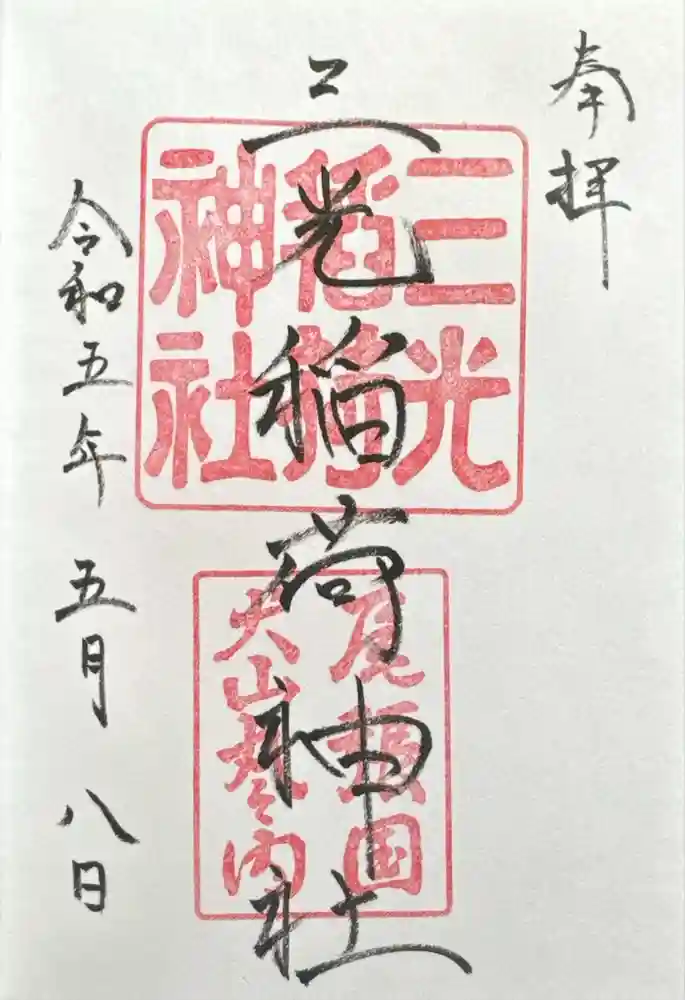 奉拝
三光稲荷神社
三光
稲荷
神社
尾張国
犬山城内
令和五年 五月 八日